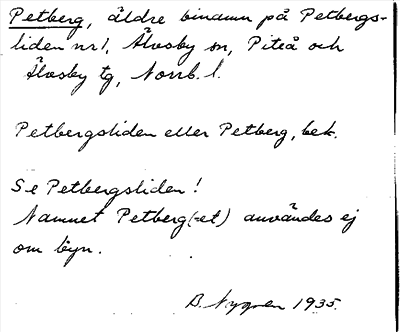 Petberg, äldre binamn på Petbergs-
liden nr 1, Älvsby sn, Piteå och
Älvsby tg, Norrb. l.
Petbergsliden eller Petberg, bek.
Se Petbergsliden!
Namnet Petberg(-et) användes ej
om byn.
B. Nygren 1935.